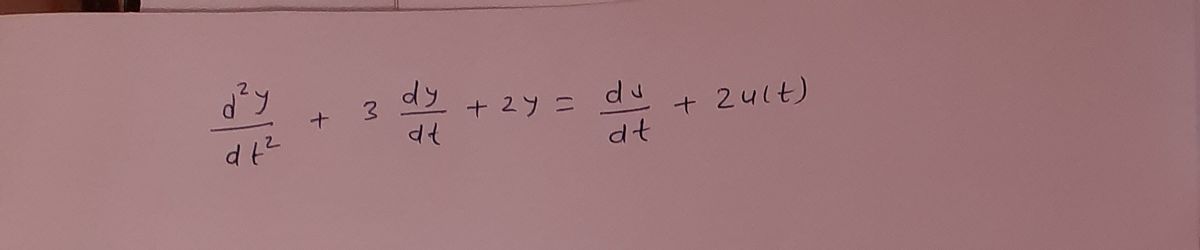 d²y/dt² + 3 dy/dt + 2y = du/dt + 2u(t)